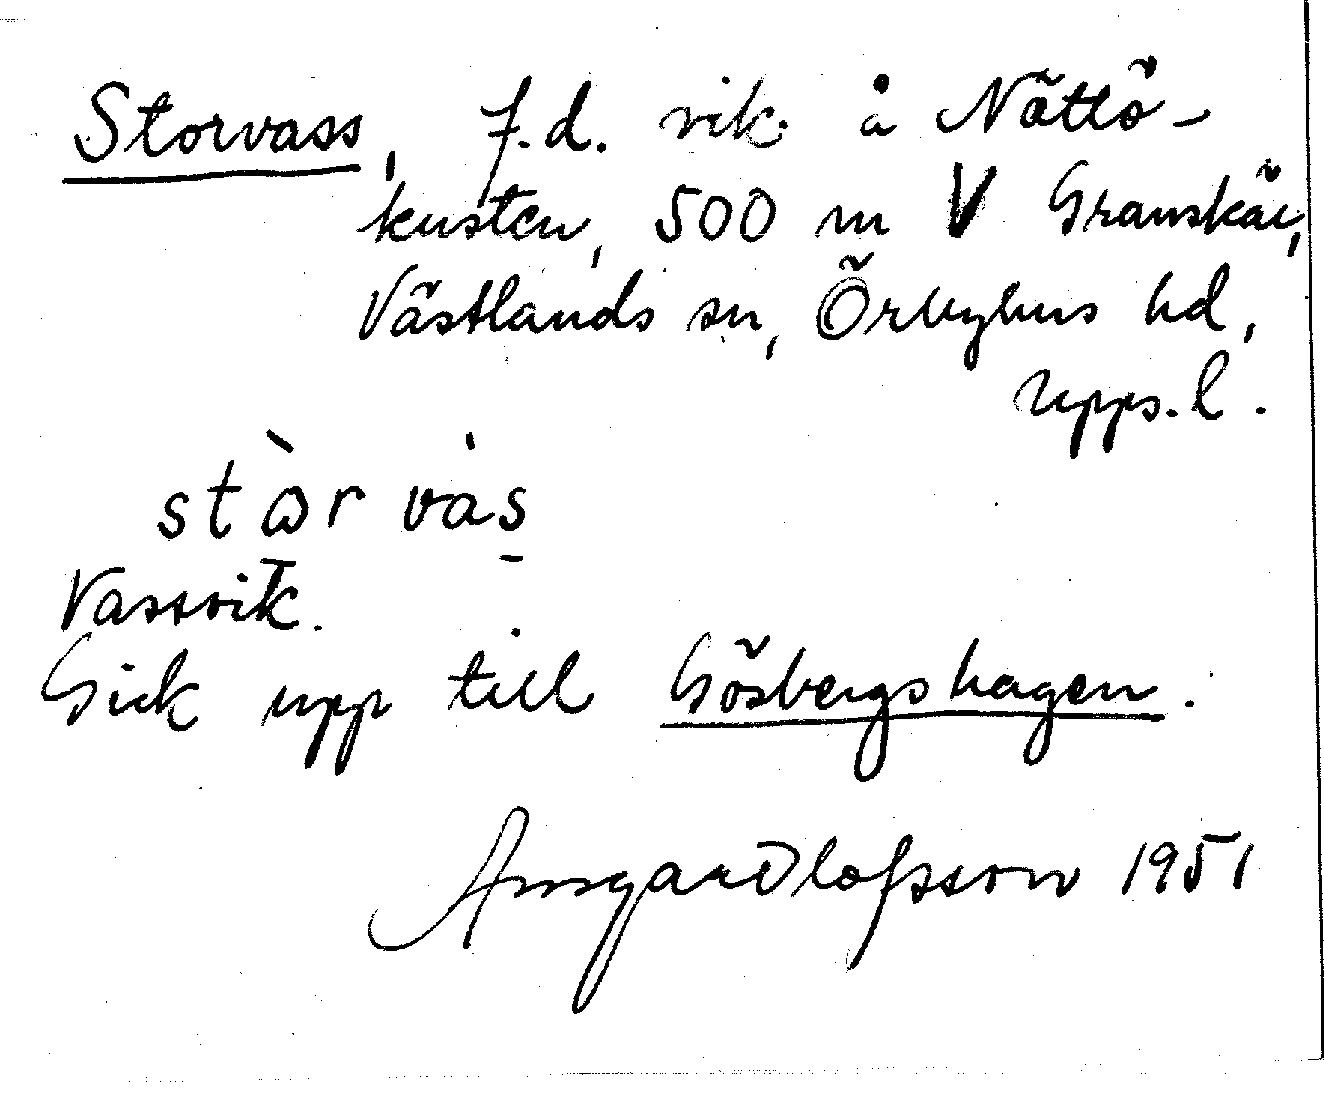 Storvass, f.d. vik å Nättö-
kusten, 500 m V Granskär,
Västlands sn, Örbyhus hd,
Upps. l.
stɷ̀r vȧs̠
Vassvik.
Gick upp till Gösbergshagen.
Ansgar Olofsson 1951